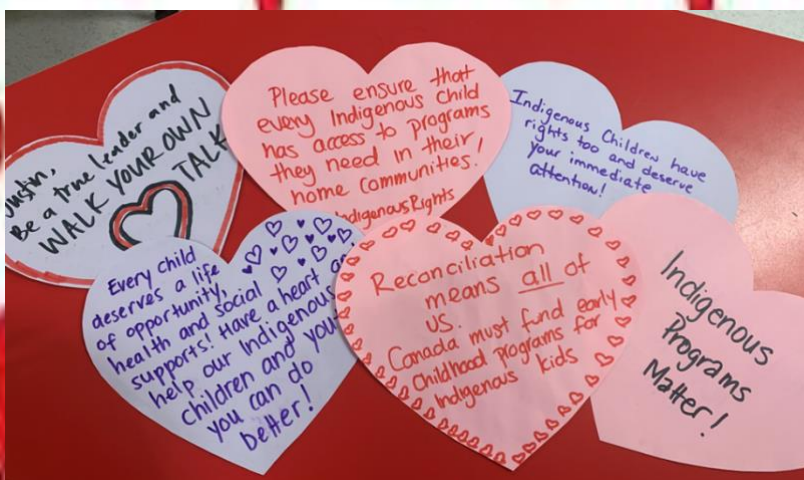 Justin,
Be a true leader and
WALK YOUR OWN
TALK
Please ensure that
every Indigenous child
has access to programs
they need in their
home communities!
IndigenousRights
Indigenous Children have
rights too and deserve
your immediate
attention!
Every child
deserves a life
of opportunity,
health and social
supports! Have a heart and
help our Indigenous
children and youth
you can do
better!
Reconciliation
means all of
us.
Canada must fund early
Childhood programs for
Indigenous kids
Indigenous
Programs
Matter!